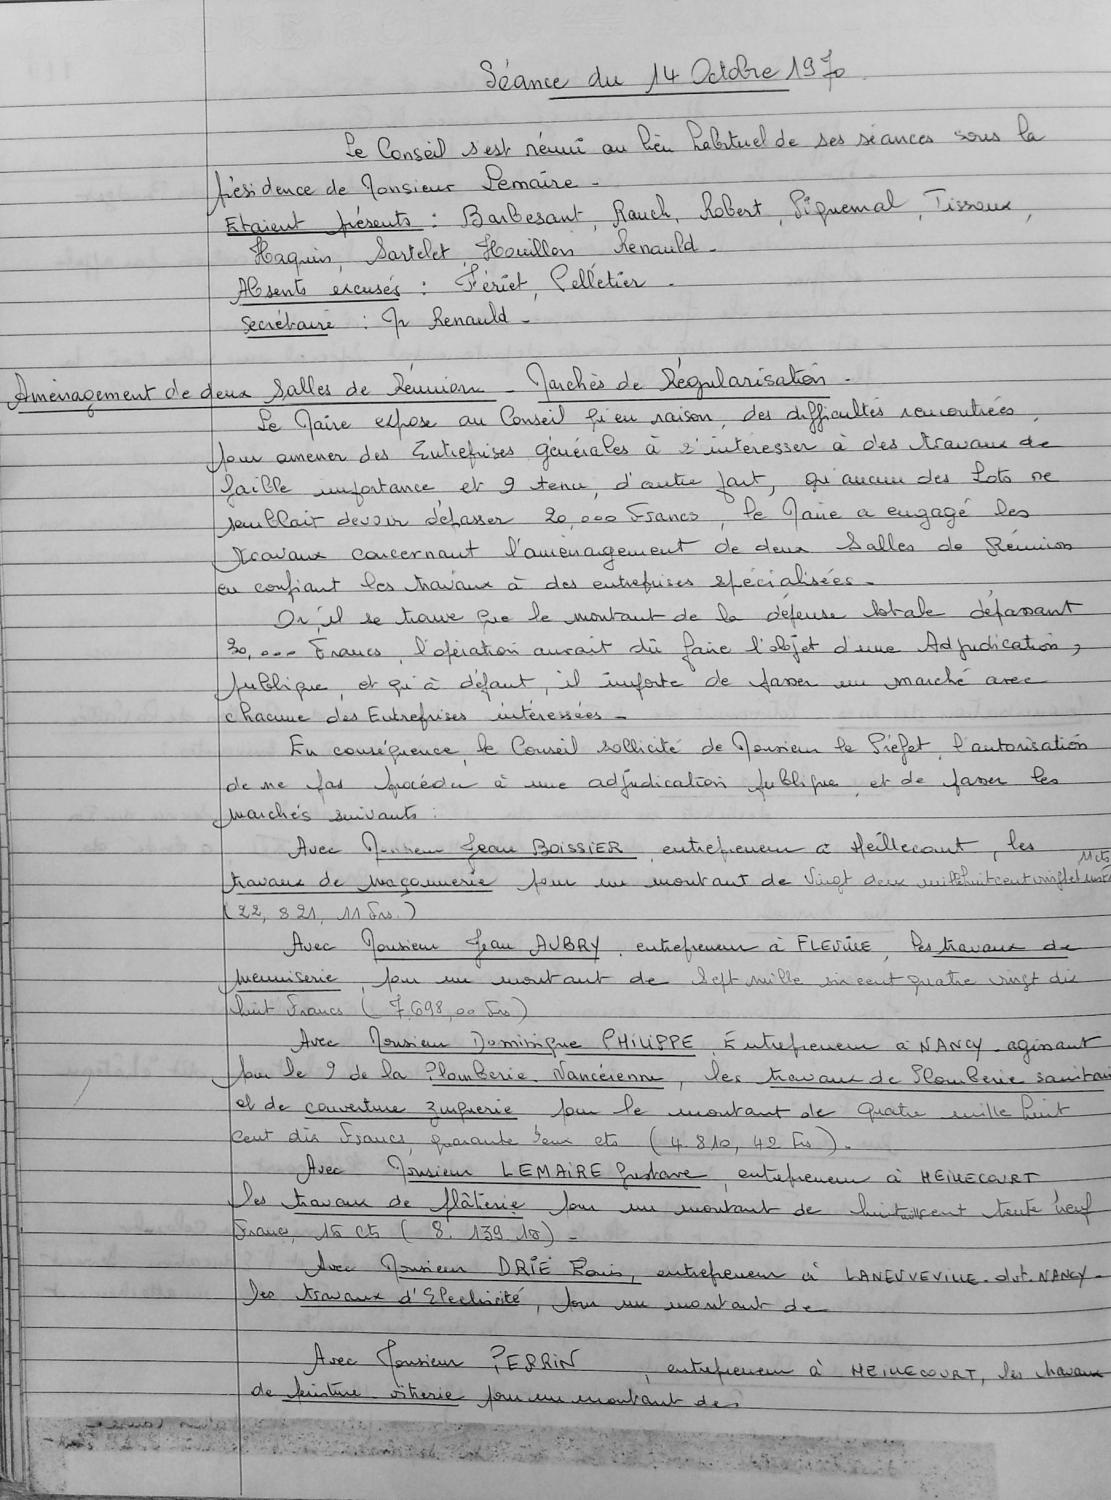 Séance du 14 Octobre 1970.
Le Conseil s'est réuni au lieu habituel de ses séances sous la
présidence de Monsieur Lemaire -
Etaient présents : Barbesant, Rauch, Robert, Piquemal, Tissoux,
Haquin, Sartelet, Houillon, Renauld -
Absents excusés : Fériet, Pelletier -
Secrétaire : Mr Renauld -
Aménagement de deux Salles de Réunion - Marchés de Régularisation -
Le Maire expose au Conseil qu'en raison, des difficultés rencontrées,
pour amener des Entreprises générales à s'intéresser à des travaux de
faible importance et 9 tenu, d'autre part, qu'aucun des Lots ne
semblait devoir dépasser 20,000 Francs, le Maire a engagé les
travaux concernant l'aménagement de deux Salles de Réunion
en confiant les travaux à des entreprises spécialisées -
Or, il se trouve que le montant de la dépense totale dépassant
30,000 Francs, l'opération aurait dû faire l'objet d'une Adjudication,
publique, et qu'à défaut, il importe de passer un marché avec
chacune des Entreprises intéressées -
En conséquence, le Conseil sollicite de Monsieur le Préfet, l'autorisation
de ne pas procéder à une adjudication publique, et de passer les
marchés suivants :
Avec Monsieur Jean BOISSIER, entrepreneur à Heillecourt, les
travaux de maçonnerie pour un montant de Vingt deux mille huit cent vingt et un frs 11 cts
(22, 821, 11 Frs.)
Avec Monsieur Jean AUBRY, entrepreneur à FLEVILLE, les travaux de
menuiserie, pour un montant de Sept mille six cent quatre vingt dix
huit Francs (7.698,00 Frs)
Avec Monsieur Dominique PHILIPPE, Entrepreneur à NANCY - agissant
pour le 9 de la Plomberie Nancéienne, les travaux de Plomberie sanitaire
et de couverture zinguerie pour le montant de quatre mille huit
cent dix Francs, quarante deux cts (4.810, 42 Frs) -
Avec Monsieur LEMAIRE Gustave, entrepreneur à HEILLECOURT
les travaux de plâterie pour un montant de huit mille cent trente neuf
Francs, 18 cts (8. 139 18) -
Avec Monsieur DRIE Louis, entrepreneur à LANEUVEVILLE - dvt. NANCY -
les travaux d'Electricité, pour un montant de
Avec Monsieur PERRIN , entrepreneur à HEILLECOURT, les travaux
de peinture - vitrerie pour un montant de :